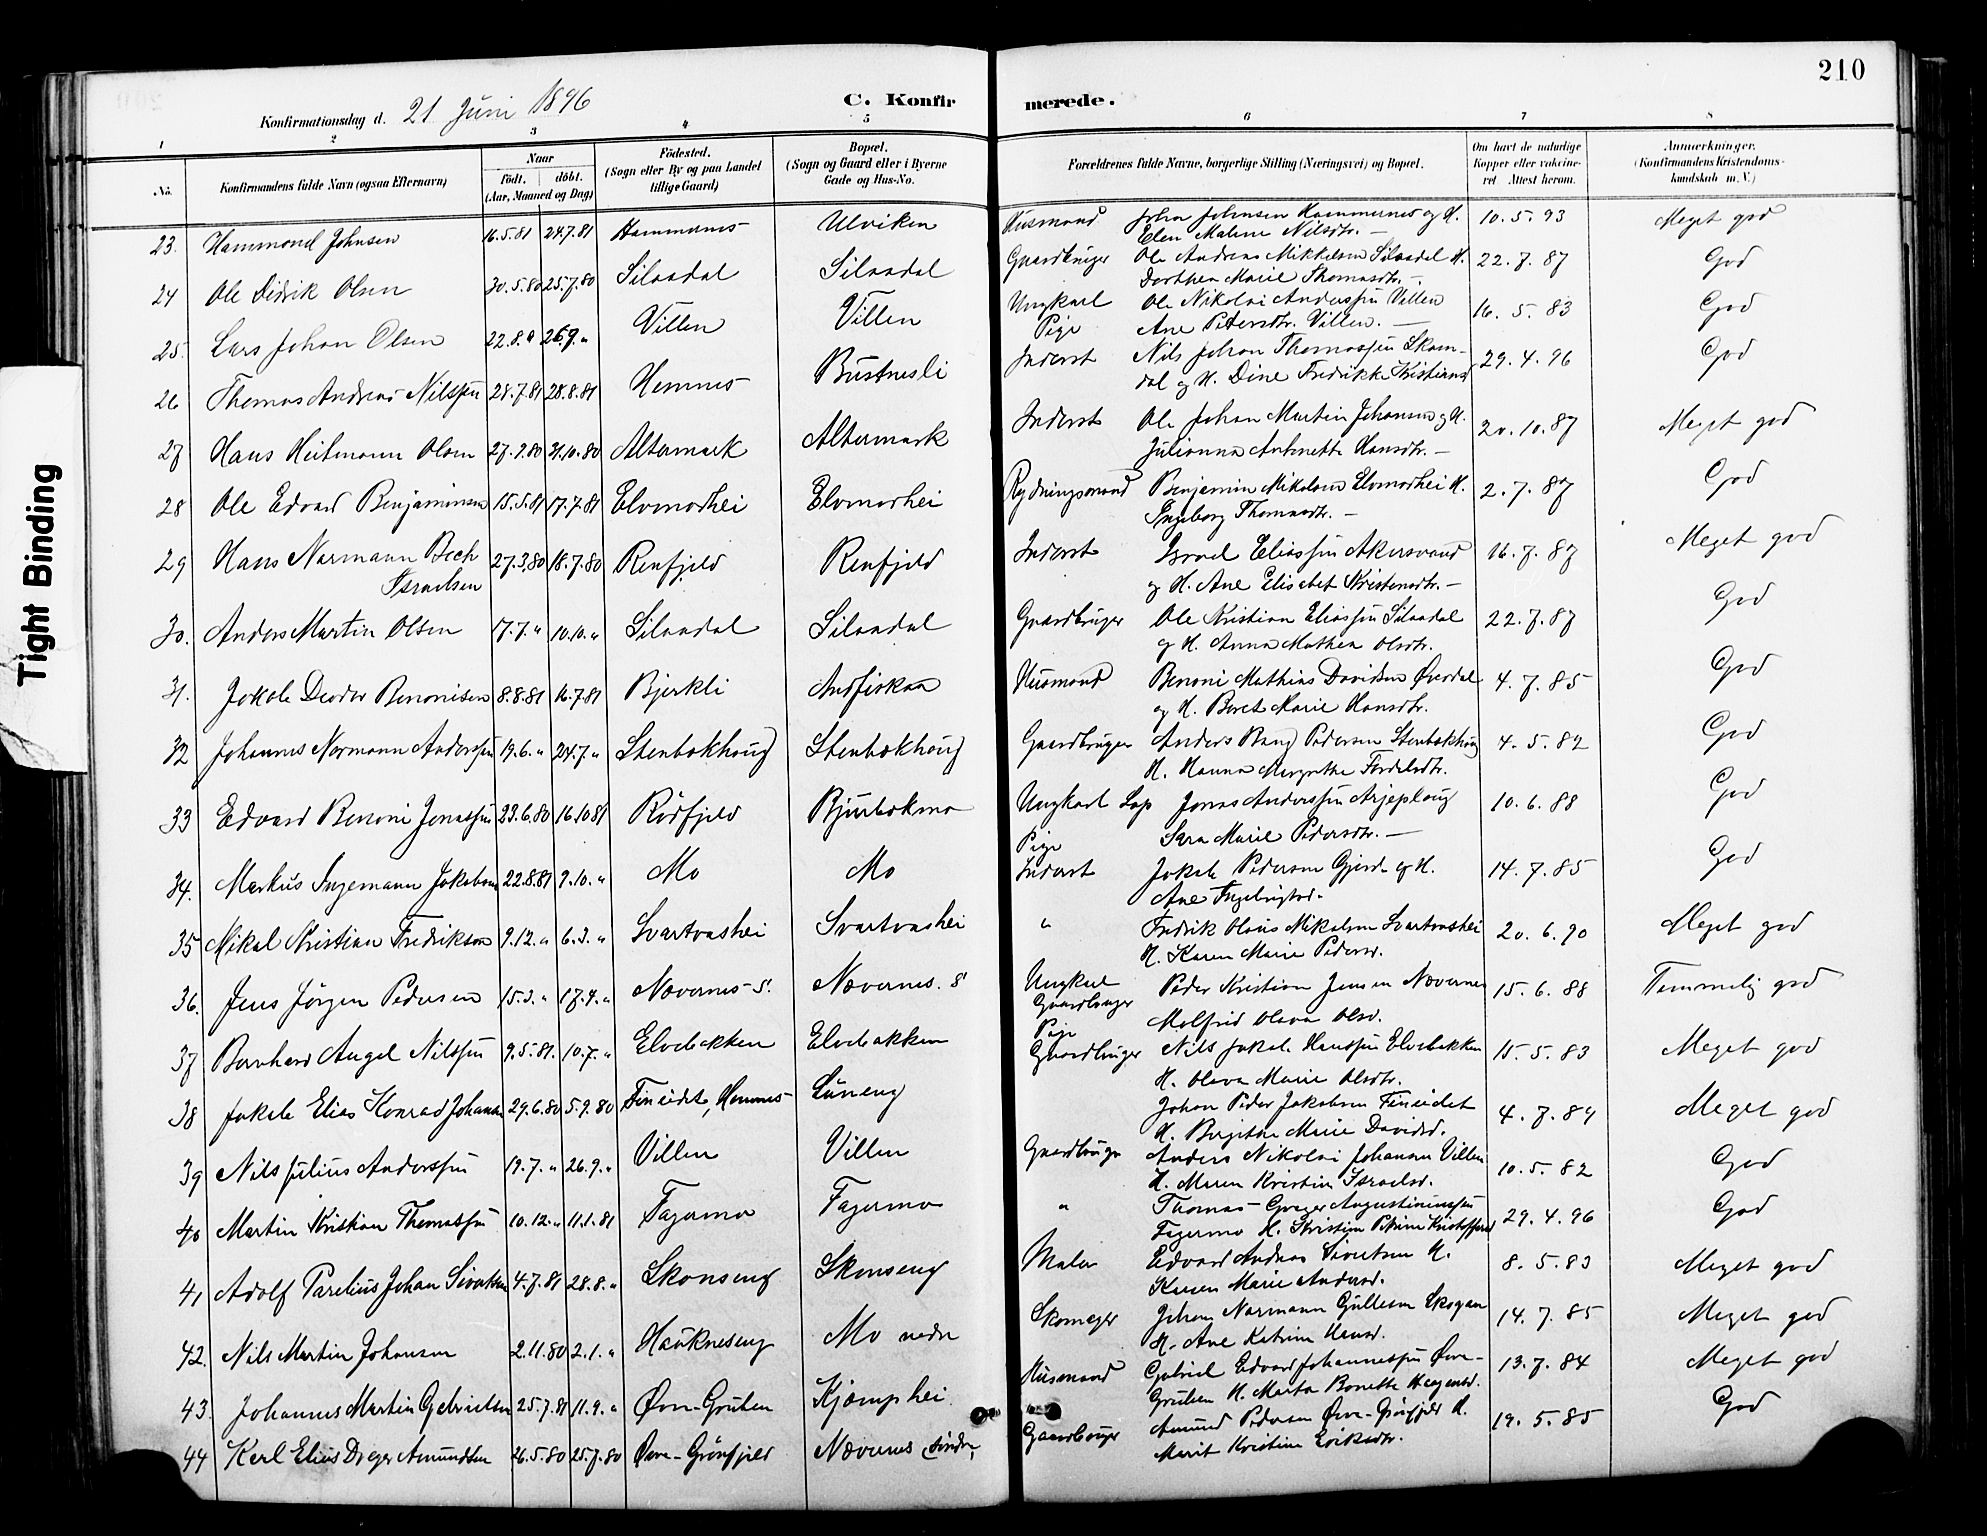 210
Konfirmationsdag d. 21 Juni 1896
C. Konfirmerede.
1 2 3 4 5 6 7 8
No. Konfirmandens fulde Navn (ogsaa Efternavn) Naar födt, döbt. (Aar, Maaned og Dag) Födested. (Sogn eller By og paa Landet tillige Gaard) Bopæl. (Sogn og Gaard eller i Byerne Gade og Hus-No. Forældrenes fulde Navne, borgerlige Stilling (Næringsvei) og Bopæl. Om havt de naturlige Kopper eller vaccineret Attest herom. Anmærkninger. (Konfirmandens Kristendomskundskab m. V.)
23. Hammond Johnsen 16.5.81 24.7.81 Hammernes Ulviken Husmand Johan Johnsen Hammernes og H. 10.5.93 Meget god
Elen Malene Nilsdtr. –
24 Ole Didrik Olsen 30.5.80 25.7.80 Silaadal Silaadal Gaardbruger Ole Andreas Mikkelsen Silaadal H. 22.7.87 God
Dorthea Marie Thomasdtr. –
25. Lars Johan Olsen 22.8. " 26.9. " Villen Villen Ungkarl Ole Nikolai Anderssen Villen 16.5.83 God
Pige Ane Petersdtr. Villen. –
26 Thomas Andreas Nilssen 28.7.81 28.8.81 Hemnes Bustnesli Inderst Nils Johan Thomassen Skamdal og H. Dine Fredrikke Kristiansd 29.4.96 God
27 Hans Heitmann Olsen 27.9.80 31.10.80 Altermark Altermark Inderst Ole Johan Martin Johansen og H. 20.10.87 Meget god
Julianna Antonette Hansdtr. –
28 Ole Edvard Benjaminsen 15.5.81 17.7.81 Elvmorhei Elvmorhei Rydningsmand Benjamin Mikalsen Elvmorhei H. 2.7.87 God
Ingeborg Thomasdtr. –
29 Hans Normann Bech 27.3.80 18.7.80 Renfjeld Renfjeld Inderst Israel Eliassen Akersvand 16.7.87 Meget god
Israelsen og H. Ane Elisabet Kristensdtr. –
30. Anders Martin Olsen 17.7. " 10.10. " Silaadal Silaadal Gaardbruger Ole Kristian Eliassen Silaadal 22.7.87 God
og H. Anna Mathea Olsdtr.
31. Jakob Deodor Benonisen 8.8.81 16.7.81 Bjerkli Andfiskaa Husmand Benoni Mathias Davidsen Överdal 4.7.85 God
og H. Beret Marie Hansdtr.
32 Johannes Normann Anderssen 19.6. " 24.7. " Stenbekhoug Stenbekhoug Gaardbruger Anders Bang Pedersen Stenbekhoug 4.5.82 God
H. Hanna Margrethe Fordelsdtr.
33 Edvard Benoni Jonassen 23.6.80 16.10.81 Rödfjeld Bjurbekmo Ungkarl Lap Jonas Anderssen Arjeploug 10.6.88 God
Pige Sara Marie Pedersdtr. –
34. Markus Ingemann Jakobsen 22.8.81 9.10. " Mo Mo Inderst Jakob Pedersen Gjerd. og H. 14.7.85 God
Ane Ingebrigtsd.
35 Mikal Kristian Fredriksen 9.12. " 6.3. " Svartvashei Svartvashei " Fredrik Olaus Mikalsen Svartvashei 20.6.90 Meget god
H. Karen Marie Pedersd.
36. Jens Jörgen Pedersen 15.3. " 17.4. " Nævernes S. Nævernes. S Ungkarl Gaardbruger Peder Kristian Jensen Nævernes 15.6.88 Temmelig god
Pige Malfrid Olava Olsd.
37 Bernhard Angel Nilssen 9.5.81. 10.7. " Elvebakken Elvebakken Gaardbruger Nils Jakob Hanssen Elvebakken 15.5.83 Meget god
H. Olava Marie Olsdtr.
38 Jakob Elias Konrad Johansen 29.6.80 5.9.80 Finseidet, Hemnes Luneng Johan Peder Jakobsen Finseidet 4.7.84 Meget god
H. Birgithe Marie Davidsd.
39 Nils Julius Anderssen 19.7. " 26.9. " Villen Villen Gaardbruger Anders Nikolai Johansen Villen 10.5.82 God
H. Maren Kristine Israelsd.
40 Martin Kristian Thomassen 10.12. " 11.1.81 Fagermo Fagermo " Thomas Greger Augustinussen 29.4.96 God
Fagermo H. Kristine Petrine Kristoffersd
41 Adolf Parelius Johan Sivertsen 4.7.81 28.8. " Skonseng Skonseng Maler Edvard Andreas Sivertsen H. 8.5.83 Meget god
Karen Marie Andersd.
42. Nils Martin Johansen 2.11.80 2.1. " Haukneseng Mo nedre Skomager Johan Normann Gullesen Skogan 14.7.85 Meget god
H. Ane Katrine Hansd.
43. Johannes Martin Gabrielsen 25.7.81 11.9. " Övre-Gruben Kjömphei Husmand Gabriel Edvard Johannessen Övre- 13.7.84 Meget god
Gruben H. Marta Bonette Haagensd.
44 Karl Elius Dreyer Amundsen 26.5.80 25.7.80 Övre-Grönfjeld Nævernes söndre Gaardbruger Amund Pedersen Övre-Grönfjeld H. 19.5.85 God
Marit Kristine Eriksdtr.
Tight Binding